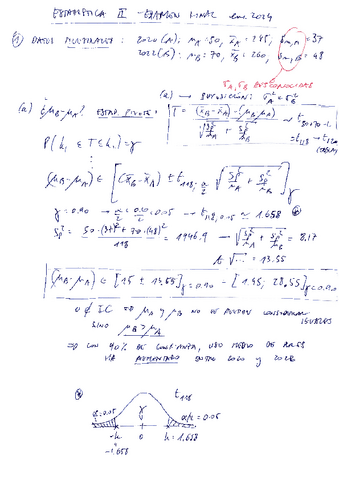 ESTADÍSTICA II - EXAMEN FINAL ene 2024
① DATOS MUESTRALES: 2020 (A): nA=50, x̄A = 245, sm,A = 37
2022 (B): nB = 70, x̄B = 260, sm,B = 48
σA, σB DESCONOCIDAS
(a) → SUPOSICIÓN: σA² = σB²
(a) ¿μB-μA? ESTAD. PIVOTE: T = (x̄B-x̄A) - (μB-μA) / √(Sp²/nA + Sp²/nB) → t50+70-2
= t118 → t120
P(k1 ≤ T ≤ k2) = γ
(μB-μA) ∈ [(x̄B-x̄A) ± t118; α/2 √(Sp²/nA + Sp²/nB)]γ
γ=0.90 → α/2 = 0.10/2 = 0.05 → t118,0.05 ≃ 1.658
Sp² = 50·(37)² + 70·(48)² / 118 = 1946.9 → √(Sp²/nA + Sp²/nB) = 8.17
t √··· = 13.55
(μB-μA) ∈ [15 ± 13.55]γ=0.90 = [1.45; 28.55]γ=0.90
0 ∉ IC ⇒ μA y μB NO SE PUEDEN CONSIDERAR IGUALES
SINO μB > μA
⇒ CON 90% DE CONFIANZA, USO MEDIO DE
HA AUMENTADO ENTRE 2020 y 2022
t118
α/2=0.05 γ α/2=0.05
-k 0 k=1.658
-1.658